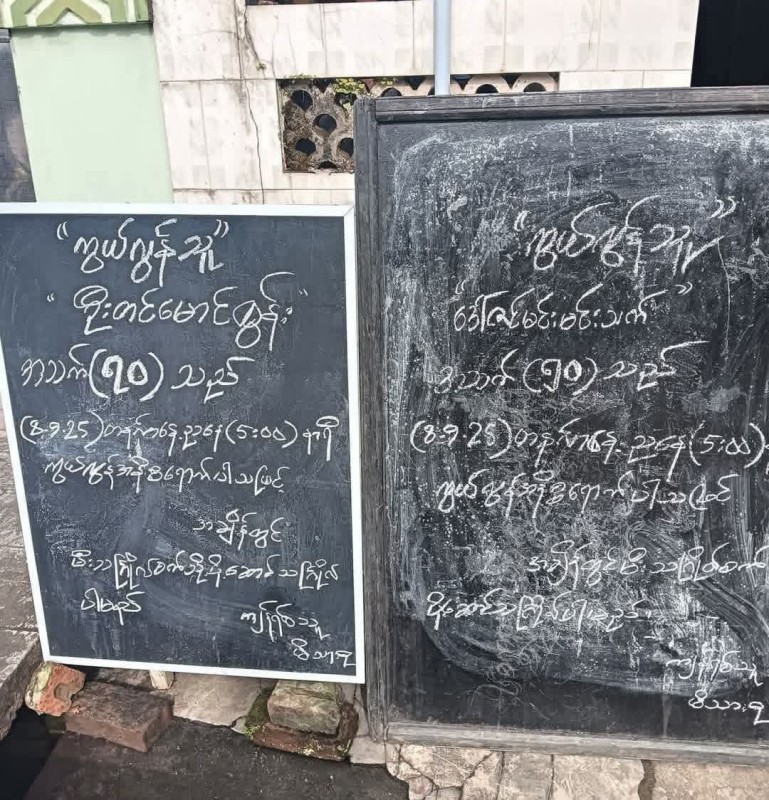 "ကွယ်လွန်သူ"
"ဦးတင်မောင်လွန်း"
အသက်(၇၀)သည်
(8-9-25)တနင်္လာနေ့ညနေ(5:00)နာရီ
ကွယ်လွန်အနိစ္စရောက်ပါသဖြင့်
အချိန်တွင်
မီးသင်္ဂြိုဟ်စက်သို့ပို့ဆောင်သင်္ဂြိုဟ်
ပါမည်
ကျန်ရစ်သူ
မိသားစု
"ကွယ်လွန်သူ"
"ဒေါ်ဇင်မင်းမင်းသက်"
အသက်(၅၀)သည်
(8-9-25)တနင်္လာနေ့ညနေ(5:00)
ကွယ်လွန်အနိစ္စရောက်ပါသဖြင့်
အချိန်တွင်မီးသင်္ဂြိုဟ်စက်
ပို့ဆောင်သင်္ဂြိုဟ်ပါမည်
ကျန်ရစ်သူ
မိသားစု